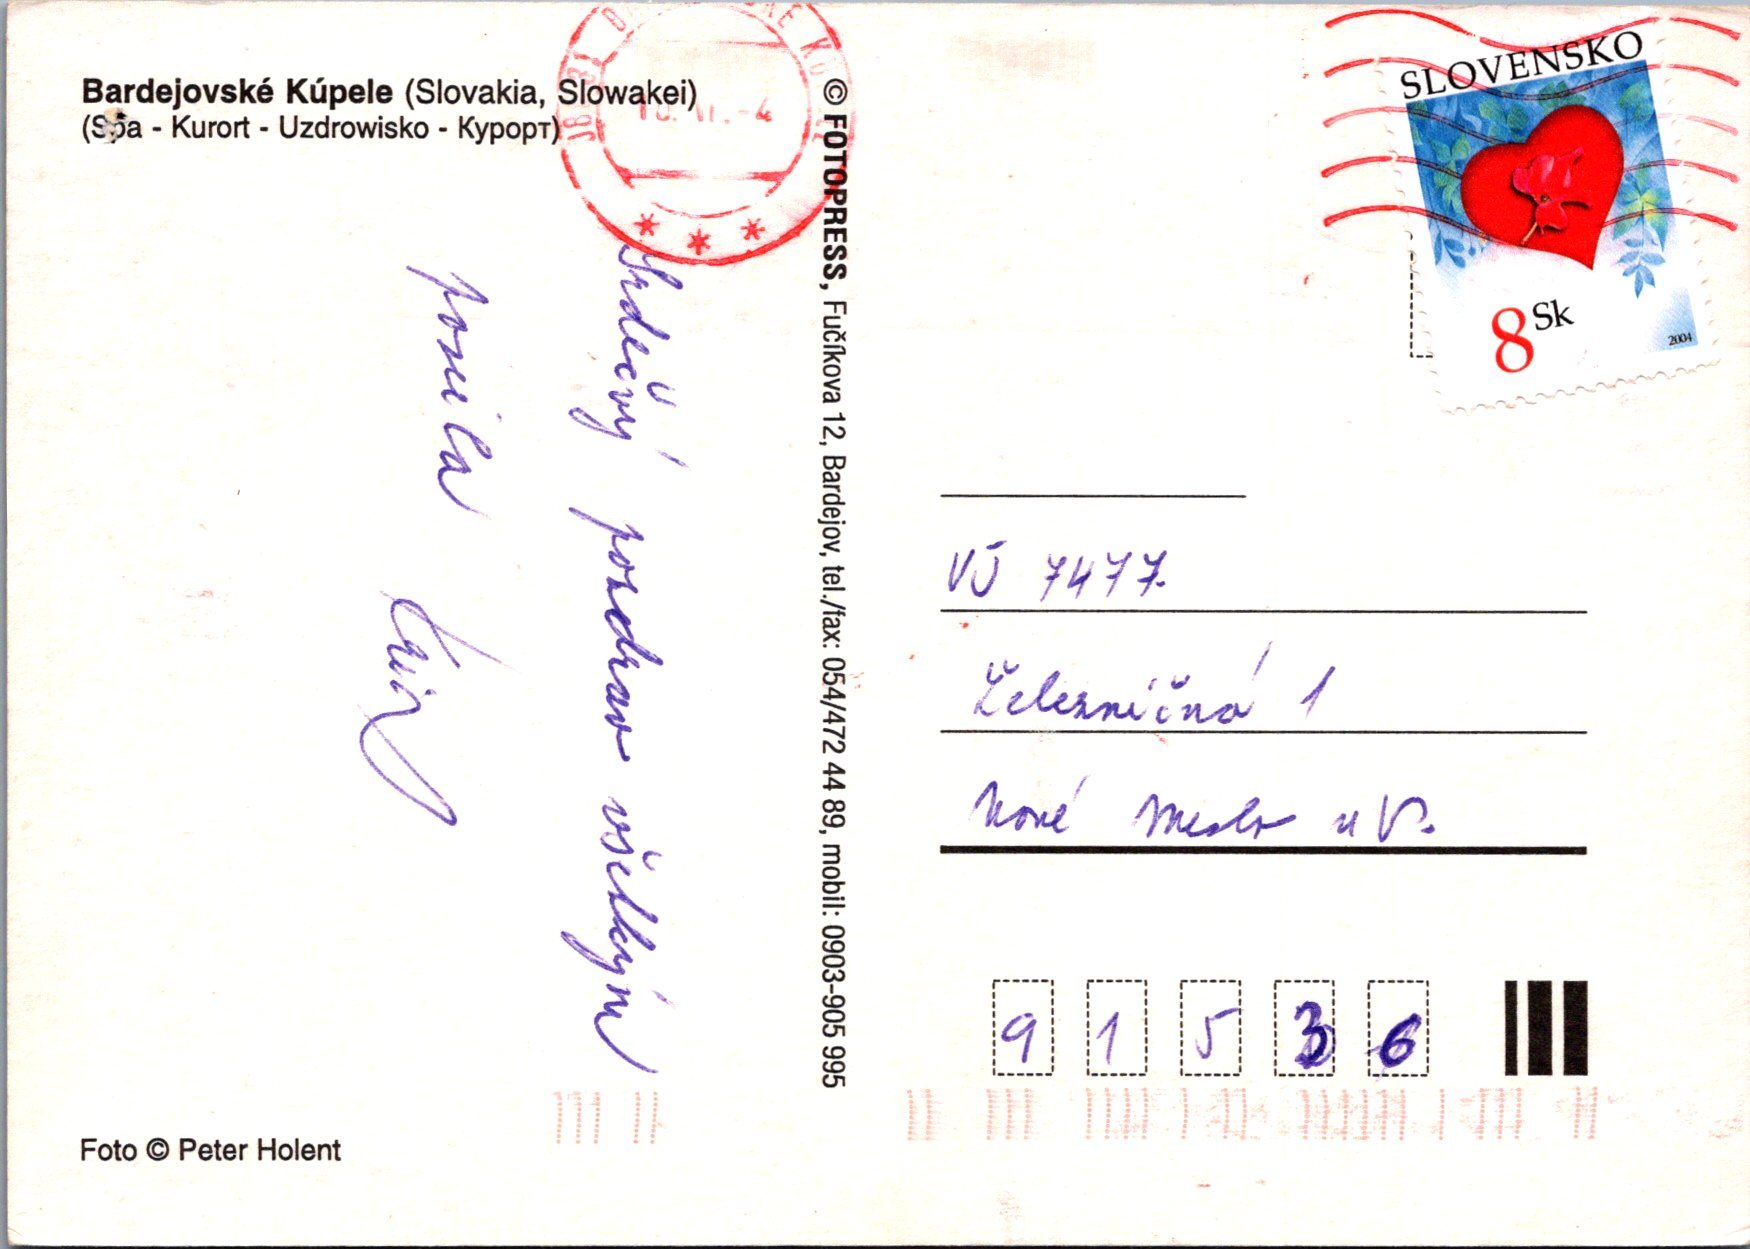 Bardejovské Kúpele (Slovakia, Slowakei)
(Spa - Kurort - Uzdrowisko - Курорт)
Srdečný pozdrav všetkým
posiela
Foto © Peter Holent
© FOTOPRESS, Fučíkova 12, Bardejov, tel./fax: 054/472 44 89, mobil: 0903-905 995
SLOVENSKO
8 Sk
2004
VÚ 7477.
Železničná 1
Nové Mesto n V.
915 36